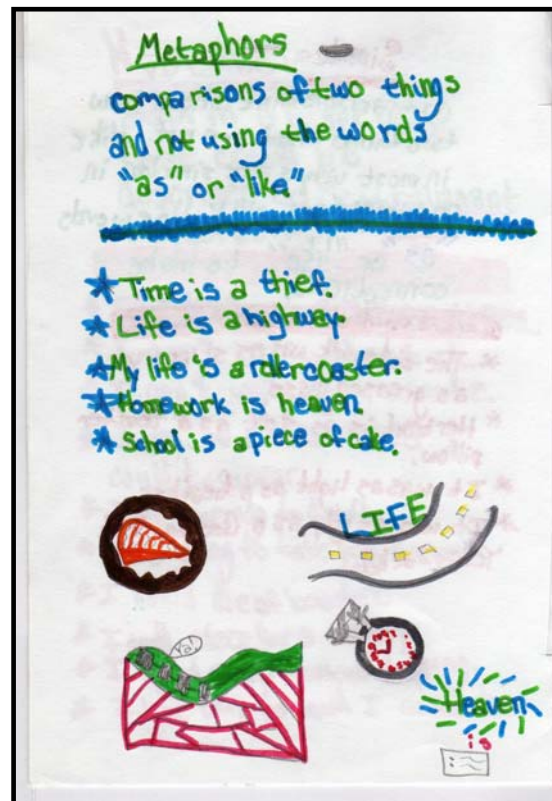 Metaphors
comparisons of two things
and not using the words
"as" or "like"
* Time is a thief.
* Life is a highway.
* My life is a rollercoaster.
* Homework is heaven.
* School is a piece of cake.
LIFE
Heaven
is